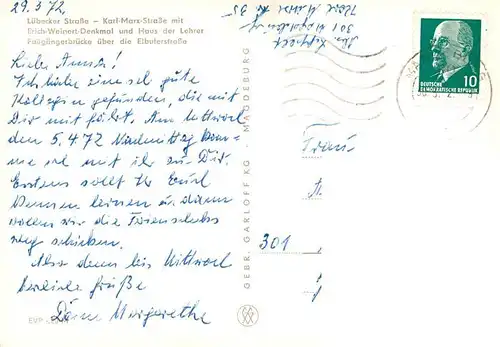 29.3.72,
Lübecker Straße – Karl-Marx-Straße mit
Erich-Weinert-Denkmal und Haus der Lehrer
Fußgängerbrücke über die Elbuferstraße
Liebe Anna!
Ich habe eine sehr gute
Kollegin gefunden, die mit
Dir mit fährt. Am Mittwoch
den 5.4.72 Nachmittag kom-
me ich mit ihr zu Dir.
Erstens sollt Ihr Euch
kennen lernen u. dann
wollen wir die
weg schicken.
Also dann bis Mittwoch
herzliche Grüße
Deine Margarethe
EVP
GEBR. GARLOFF KG · MAGDEBURG
301 Magdeburg
Karl Marx Str. 35
DEUTSCHE
DEMOKRATISCHE REPUBLIK
10
Frau
A.
301